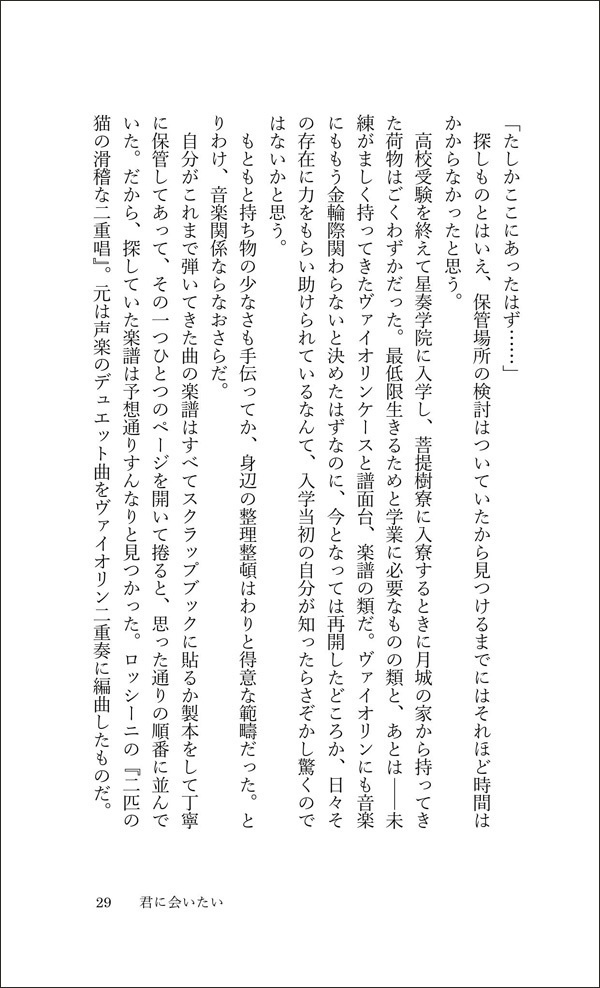 「たしかここにあったはず……」
　探しものとはいえ、保管場所の検討はついていたから見つけるまでにはそれほど時間は
かからなかったと思う。
　高校受験を終えて星奏学院に入学し、菩提樹寮に入寮するときに月城の家から持ってき
た荷物はごくわずかだった。最低限生きるためと学業に必要なものの類と、あとは――未
練がましく持ってきたヴァイオリンケースと譜面台、楽譜の類だ。ヴァイオリンにも音楽
にももう金輪際関わらないと決めたはずなのに、今となっては再開したどころか、日々そ
の存在に力をもらい助けられているなんて、入学当初の自分が知ったらさぞかし驚くので
はないかと思う。
　もともと持ち物の少なさも手伝ってか、身辺の整理整頓はわりと得意な範疇だった。と
りわけ、音楽関係ならなおさらだ。
　自分がこれまで弾いてきた曲の楽譜はすべてスクラップブックに貼るか製本をして丁寧
に保管してあって、その一つひとつのページを開いて捲ると、思った通りの順番に並んで
いた。だから、探していた楽譜は予想通りすんなりと見つかった。ロッシーニの『二匹の
猫の滑稽な二重唱』。元は声楽のデュエット曲をヴァイオリン二重奏に編曲したものだ。
29　君に会いたい